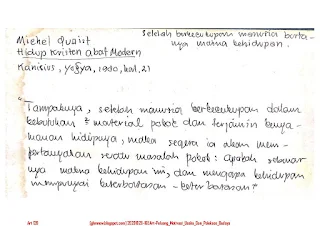 Michel Quoist
Hidup Kristen abat Modern
Kanisius, Yogya, 1980, hal, 21
Setelah berkecukupan manusia berta-
nya makna kehidupan.
"Tampaknya, setelah manusia berkecukupan dalam
kebutuhan² material pokok dan terjamin kenya-
manan hidupnya, maka segera ia akan mem-
pertanyakan suatu masalah pokok: Apakah sebenar
nya makna kehidupan ini, dan mengapa kehidupan
mempunyai keterbatasan-keterbatasan?